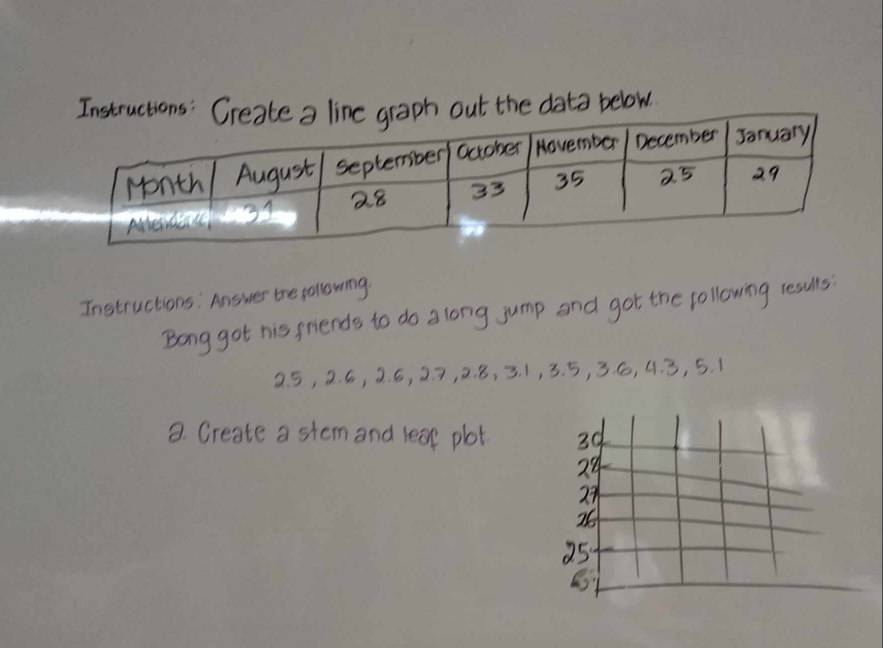 Instructions: Create a line graph out the data below.
Month August September October November December January
Attendance 31 28 33 35 25 29
Instructions: Answer the following.
Bong got his friends to do a long jump and got the following results:
2.5, 2.6, 2.6, 2.7, 2.8, 3.1, 3.5, 3.6, 4.3, 5.1
a. Create a stem and leaf plot
30
28
27
26
25